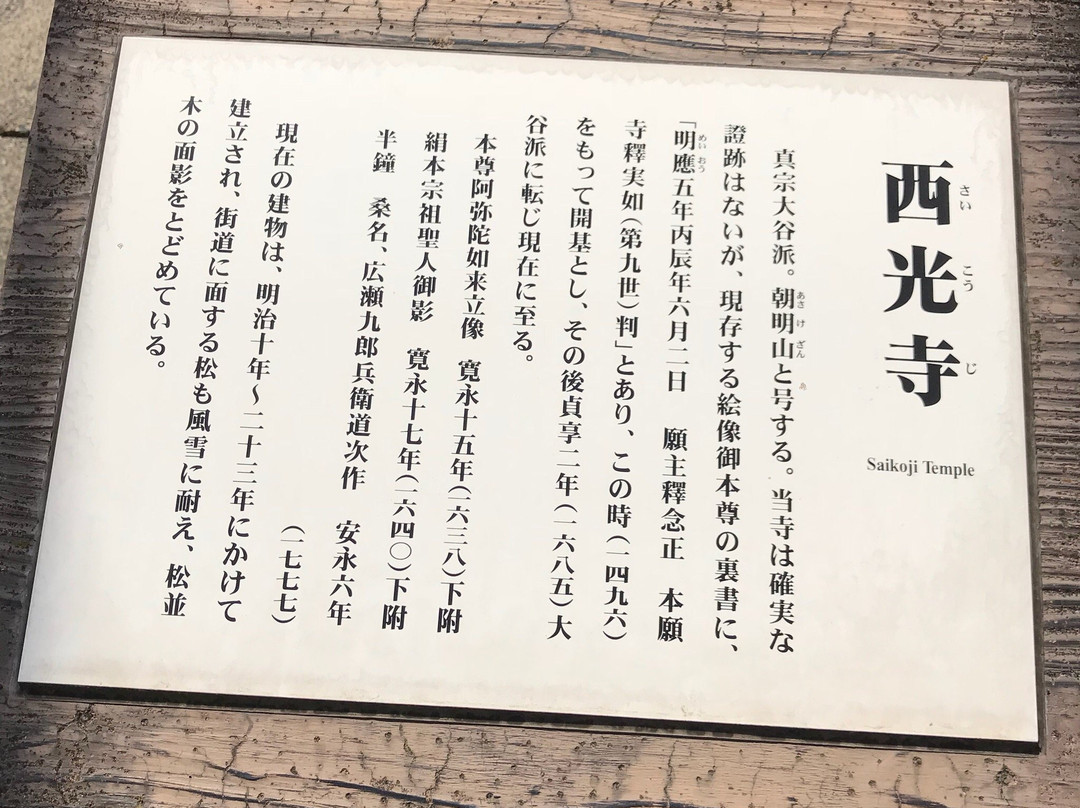 西光寺
さいこうじ
Saikoji Temple
真宗大谷派。朝明山と号する。当寺は確実な
あさけざん
證跡はないが、現存する絵像御本尊の裏書に、
「明應五年丙辰年六月二日　願主釋念正　本願
めいおう
寺釋実如(第九世)判」とあり、この時(一四九六)
をもって開基とし、その後貞享二年(一六八五)大
谷派に転じ現在に至る。
本尊阿弥陀如来立像　寛永十五年(一六三八)下附
絹本宗祖聖人御影　寛永十七年(一六四〇)下附
半鐘　桑名、広瀬九郎兵衛道次作　安永六年
(一七七七)
現在の建物は、明治十年〜二十三年にかけて
建立され、街道に面する松も風雪に耐え、松並
木の面影をとどめている。